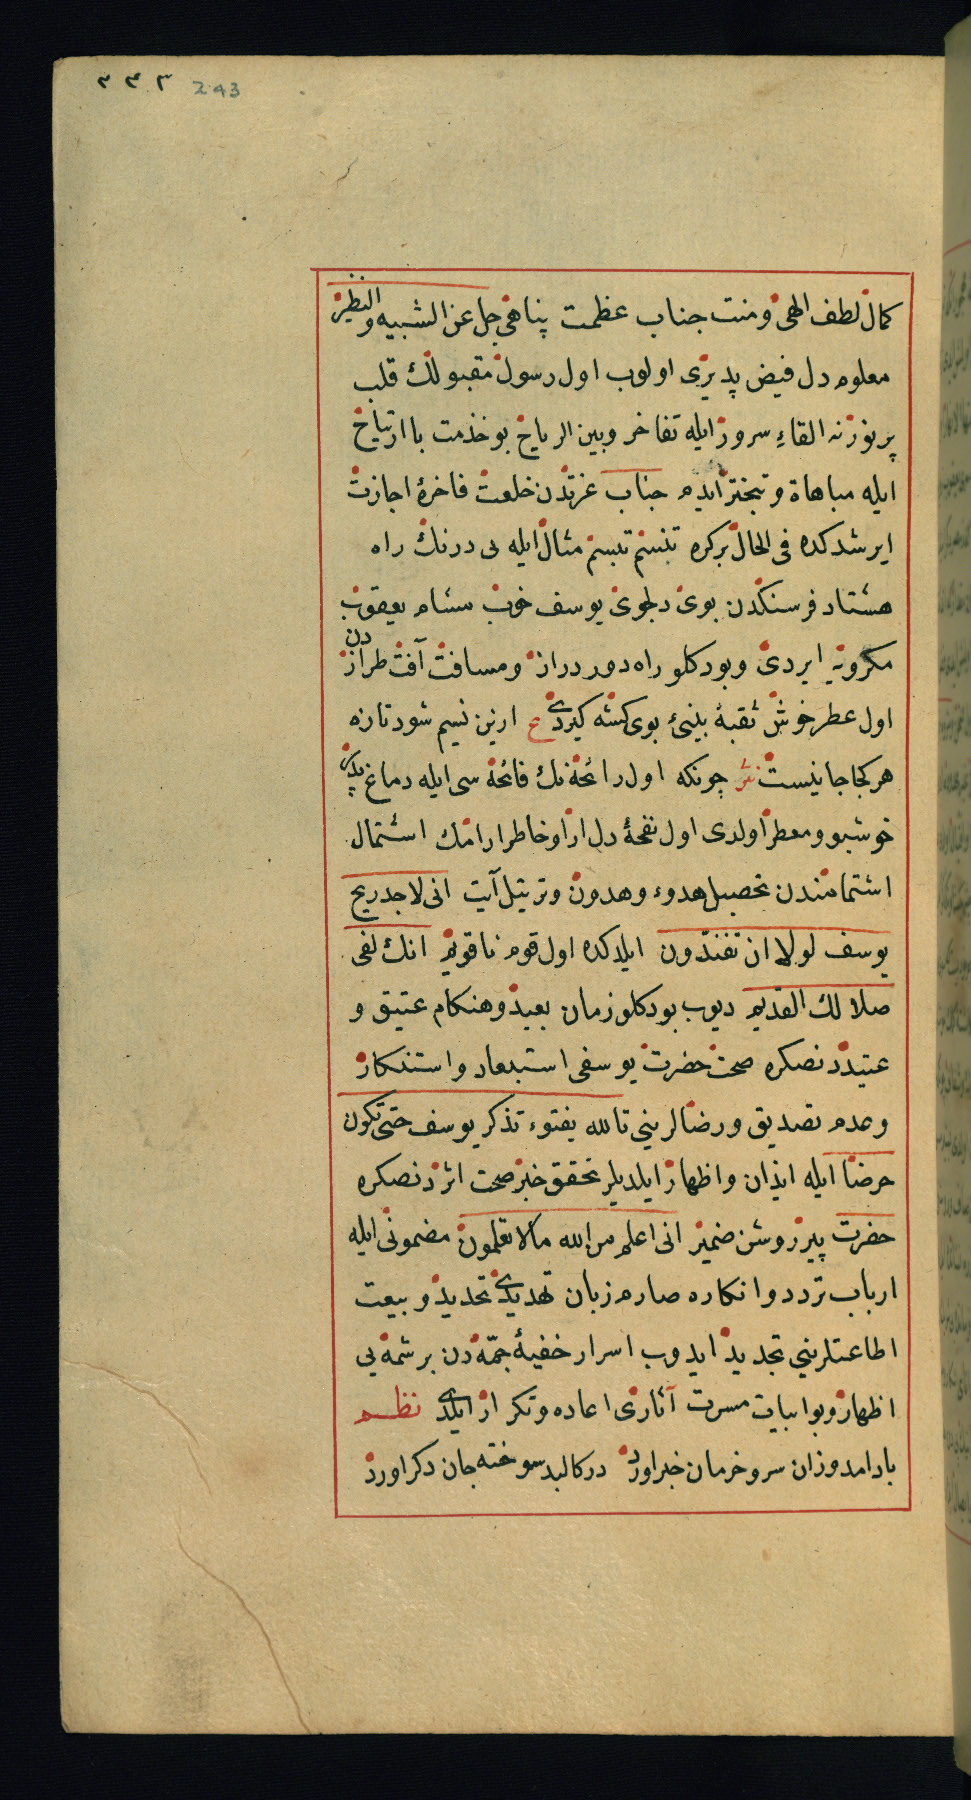 ۲۴۳ 243
كمال لطف الهی و منت جناب عظمت پناهی جل عن الشبیه و النظیر
معلوم دل فیض پدیری اولوب اول رسول مقبولك قلب
پرنورنه القاءِ سرور ایله تفاخر و بین الریاح بو خذمت با ارتیاح
ایله مباهاة و تبختر ایدم جناب عزتدن خلعت فاخرهٔ اجازت
ایرشدكده فی الحال بركره تنسم تبسم مثال ایله بی درنك راه
هشتاد فرسنكدن بوی دلجوی یوسف خوب مشام یعقوب
مكروبه ایردی و بو دكلو راه دور دراز و مسافت آفت طرازدن
اول عطر خوش ثقبهٔ بینئ بوی كشنه كیردی ع ازین نسیم شود تازه
هر كجا جانیست نثر چونكه اول رائحه نك فائحه سی ایله دماغ پدر
خوشبو و معطر اولدی اول نفحهٔ دل ارا و خاطر ارامك اشتمال
اشتمامندن تحصیل هدوء و هدون و ترتیل آیت انی لاجد ریح
یوسف لولا ان تفندون ایلدكده اول قوم ناقویم انك لفی
ضلالك القدیم دیوب بو دكلو زمان بعید و هنكام عتیق و
عتیددنصكره صحت حضرت یوسفی استبعاد و استنكار
و عدم تصدیق و رضالرینی تالله یفتوء تذكر یوسف حتی تكون
حرضا ایله ایذان و اظهار ایلدیلر تحقق خبر صحت اثردنصكره
حضرت پیر روشن ضمیر انی اعلم من الله مالا تعلمون مضمونی ایله
ارباب تردد و انكاره صارم زبان تهدیدی تحدید و بیعت
اطاعتلرینی تجدید ایدوب اسرار خفیهٔ جمّه دن بر شمه یی
اظهار و بو ابیات مسرت آثاری اعاده و تكرار ایلدی نظم
باد امد وزان سرو خرمان خبر اورد در كالبد سوخته جان دكر اورد